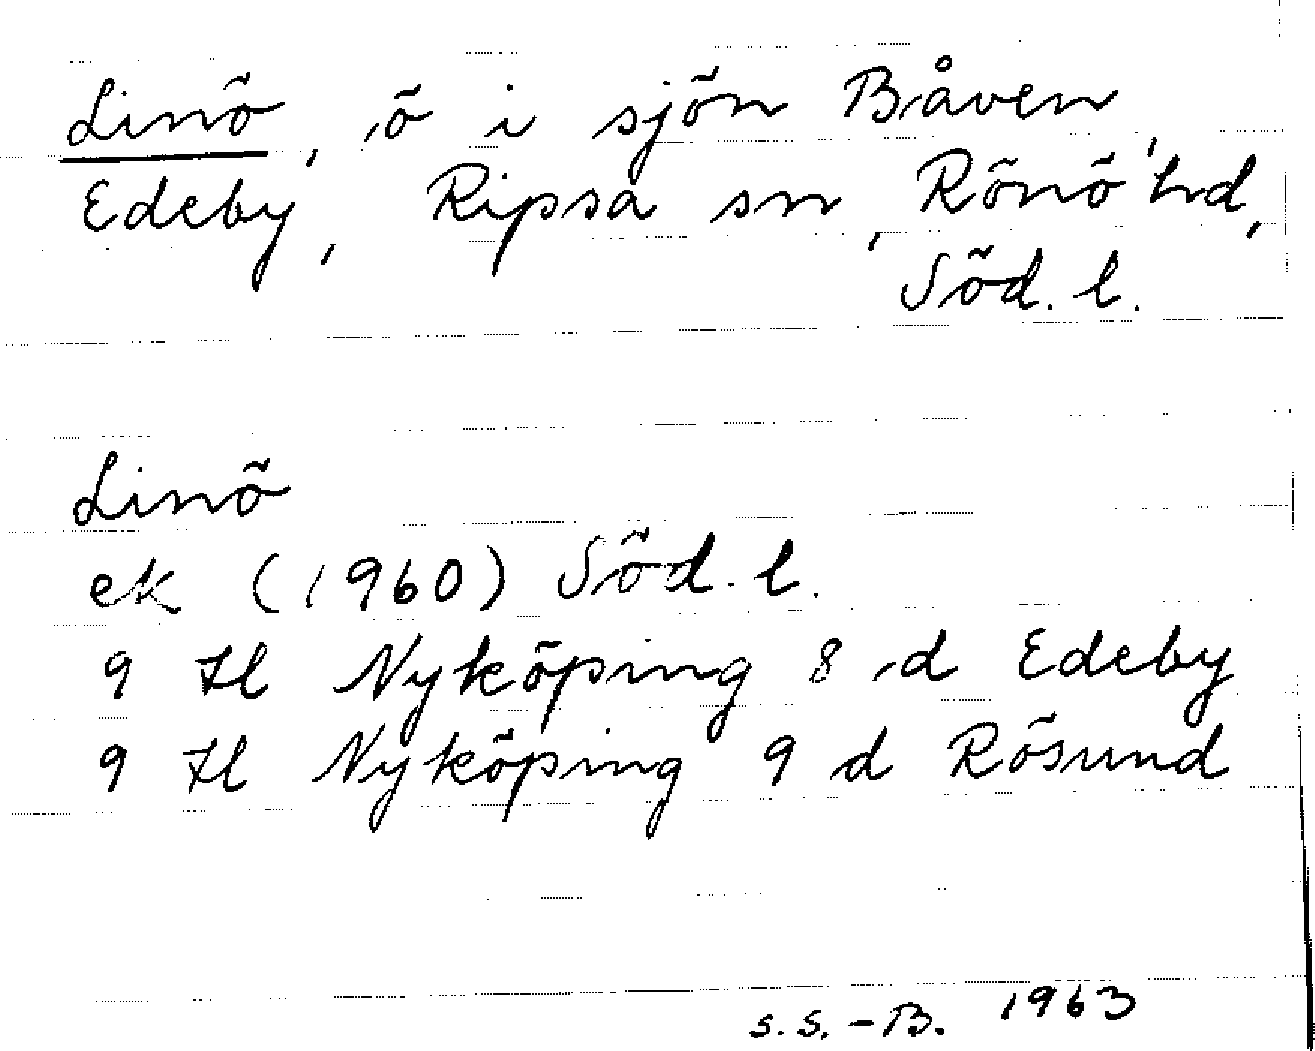 Linö, ö i sjön Båven,
Edeby, Ripsa sn, Rönö hd,
Söd. l.
Linö
ek (1960) Söd. l.
9 Hl Nyköping 8 d Edeby
9 Hl Nyköping 9 d Rösund
S. S. - B. 1963